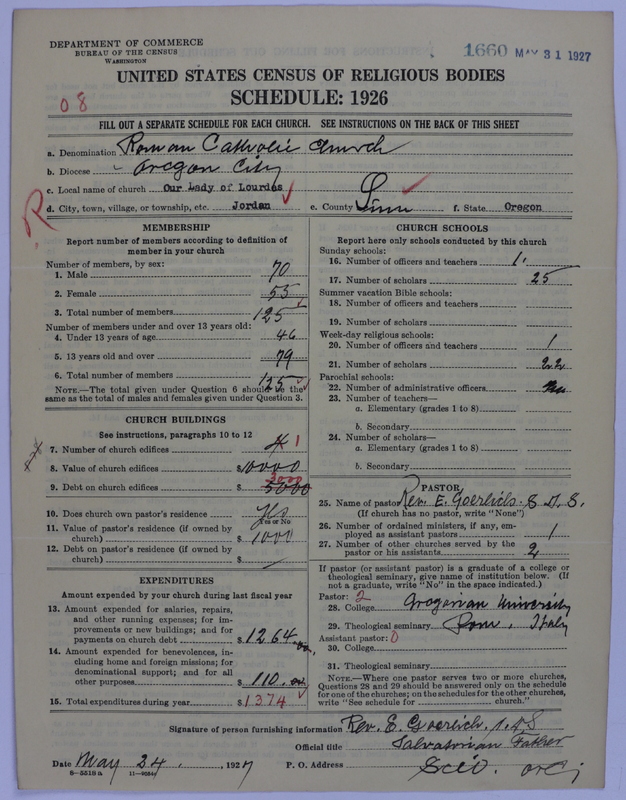 DEPARTMENT OF COMMERCE
BUREAU OF THE CENSUS
WASHINGTON
1660 MAY 31 1927
UNITED STATES CENSUS OF RELIGIOUS BODIES
SCHEDULE: 1926
08
FILL OUT A SEPARATE SCHEDULE FOR EACH CHURCH. SEE INSTRUCTIONS ON THE BACK OF THIS SHEET
a. Denomination Roman Catholic Church
b. Diocese Oregon City
c. Local name of church Our Lady of Lourdes
d. City, town, village, or township, etc. Jordan e. County Linn f. State Oregon
R
MEMBERSHIP
Report number of members according to definition of
member in your church
Number of members, by sex:
1. Male 70
2. Female 55
3. Total number of members 125
Number of members under and over 13 years old:
4. Under 13 years of age 46
5. 13 years old and over 79
6. Total number of members 125
NOTE.—The total given under Question 6 should be the
same as the total of males and females given under Question 3.
CHURCH BUILDINGS
See instructions, paragraphs 10 to 12
7. Number of church edifices 1
8. Value of church edifices $10000
9. Debt on church edifices $ 3000
10. Does church own pastor's residence Yes
Yes or No
11. Value of pastor's residence (if owned by
church) $ 1000
12. Debt on pastor's residence (if owned by
church) $ —
EXPENDITURES
Amount expended by your church during last fiscal year
13. Amount expended for salaries, repairs,
and other running expenses; for im-
provements or new buildings; and for
payments on church debt $1264.00
14. Amount expended for benevolences, in-
cluding home and foreign missions; for
denominational support; and for all
other purposes $ 110.00
15. Total expenditures during year $1374
CHURCH SCHOOLS
Report here only schools conducted by this church
Sunday schools:
16. Number of officers and teachers 1
17. Number of scholars 25
Summer vacation Bible schools:
18. Number of officers and teachers
19. Number of scholars
Week-day religious schools:
20. Number of officers and teachers 1
21. Number of scholars 22
Parochial schools:
22. Number of administrative officers
23. Number of teachers—
a. Elementary (grades 1 to 8)
b. Secondary
24. Number of scholars—
a. Elementary (grades 1 to 8)
b. Secondary
PASTOR
25. Name of pastor Rev. E. Goerlich. S.D.S.
(If church has no pastor, write "None")
26. Number of ordained ministers, if any, em-
ployed as assistant pastors 1
27. Number of other churches served by the
pastor or his assistants 2
If pastor (or assistant pastor) is a graduate of a college or
theological seminary, give name of institution below. (If
not a graduate, write "No" in the space indicated.)
Pastor: 2
28. College Gregorian University
29. Theological seminary Rom, Italy
Assistant pastor: 0
30. College
31. Theological seminary
NOTE.—Where one pastor serves two or more churches,
Questions 28 and 29 should be answered only on the schedule
for one of the churches; on the schedules for the other churches,
write "See schedule for church."
Signature of person furnishing information Rev. E. Goerlich. S.D.S
Official title Salvatorian Father
Date May 24, 1927 P. O. Address Scio. Oreg
8—5518a 11—9054